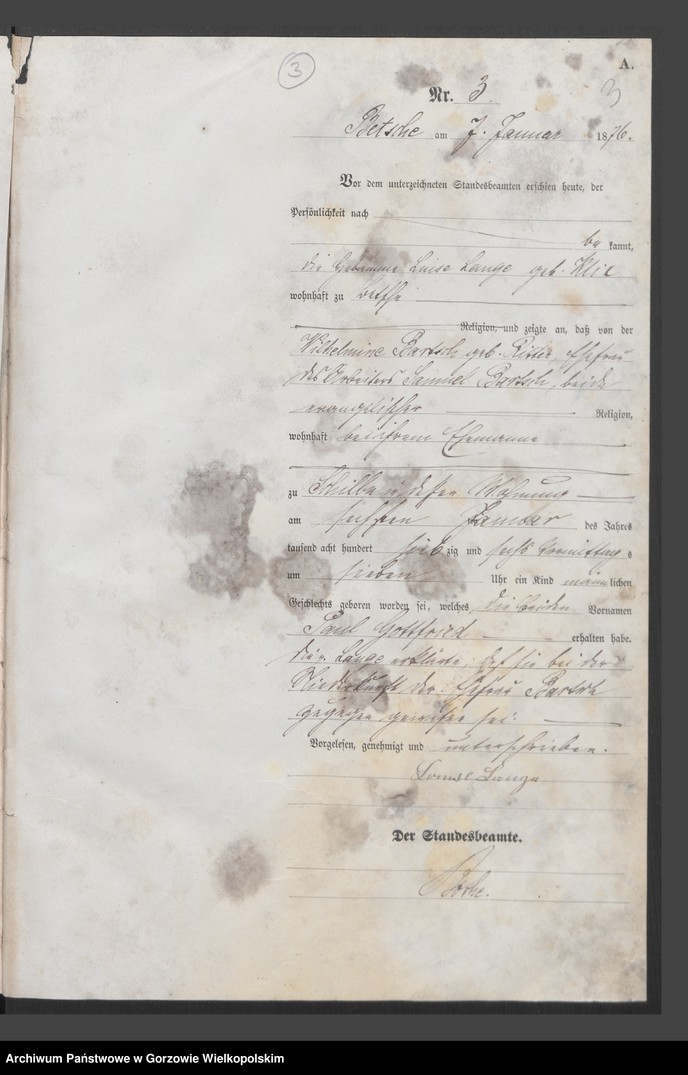 3
A.
Nr. 3.
3
Betsche am 7. Januar 1876.
Vor dem unterzeichneten Standesbeamten erschien heute, der
Persönlichkeit nach
be kannt,
die Hebamme Luise Lange geb. Klie
wohnhaft zu Betsche
Religion, und zeigte an, daß von der
Wilhelmine Bartsch geb. Ritter Ehefrau
des Arbeiters Samuel Bartsch, beide
evangelischer Religion,
wohnhaft bei ihrem Ehemanne
zu in dessen Wohnung
am sechsten Januar des Jahres
tausend acht hundert siebzig und sechs Vormittags
um sieben Uhr ein Kind männlichen
Geschlechts geboren worden sei, welches die beiden Vornamen
Paul Gottfried erhalten habe.
Die Lange erklärte, daß sie bei der
Niederkunft der Ehefrau Bartsch
zugegen gewesen sei.
Vorgelesen, genehmigt und unterschrieben.
Louise Lange
Der Standesbeamte.
Archiwum Państwowe w Gorzowie Wielkopolskim